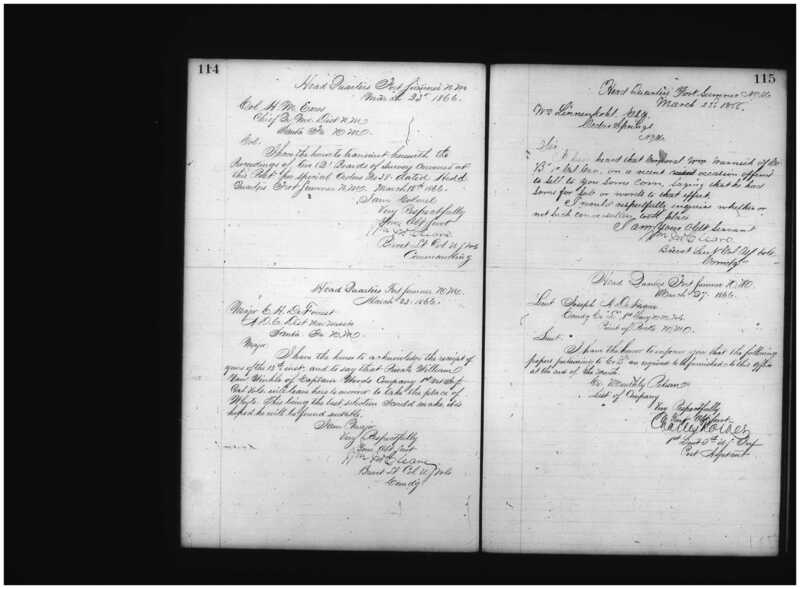 114
Head Quarters Fort Sumner N.M.
March 22d 1866.
Col. H. M. Enos
Chief Q.M. Dist N.M.
Santa Fe N.M.
Col.
I have the honor to transmit herewith the
Proceedings of two (2) Boards of Survey convened at
this Post for Special Orders No 28. dated Head
Quarters Fort Sumner N.M. March 18th 1866.
I am Colonel
Very Respectfully
Your Obt Servt
Wm McCleave
Brevet Lt Col U.S. Vols
Commanding
Head Quarters Fort Sumner N.M.
March 22. 1866.
Major E. H. De Forrest
A.D.C. Dist New Mexico
Santa Fe N.M.
Major
I have the honor to acknowledge the receipt of
yours of the 18th inst. and to say that Private William
Van Winkle of Captain Company 1st Inf
Cal. Vols. will leave here to-morrow to take the place of
Whyte. This being the best selection I could make, it is
hoped he will be found suitable.
I am Major
Very Respectfully
Your Obt Servt
Wm McCleave
Brevet Lt Col U.S. Vols
Comdg
115
Head Quarters Fort Sumner N.M.
March 22d 1866.
Wm Linnenkohl
Cedar Springs
N.M.
Sir
I have heard that Corporal of Co
"B" 1st Cal Cav. on a recent occasion offered
to sell to you some Corn, saying that he had
some for Sale or words to that effect.
I would respectfully inquire whether or
not such conversation took place
I am Yours Obt Servant
Wm McCleave
Brevet Lieut Col U.S. Vols.
Comdg
Head Quarters Fort Sumner N.M.
March 27. 1866.
Lieut Joseph A.
Comdg Co 1st Cavy N.M. Vols.
Point of Rocks N.M.
Lieut.
I have the honor to inform you that the following
papers pertaining to Co are required to be furnished to this Office
at the end of the month
Co. Monthly Return
List of Company
Very Respectfully
Your Obt Servt
Charles Porter
1st Lieut 5th U.S. Inf
Post Adjutant